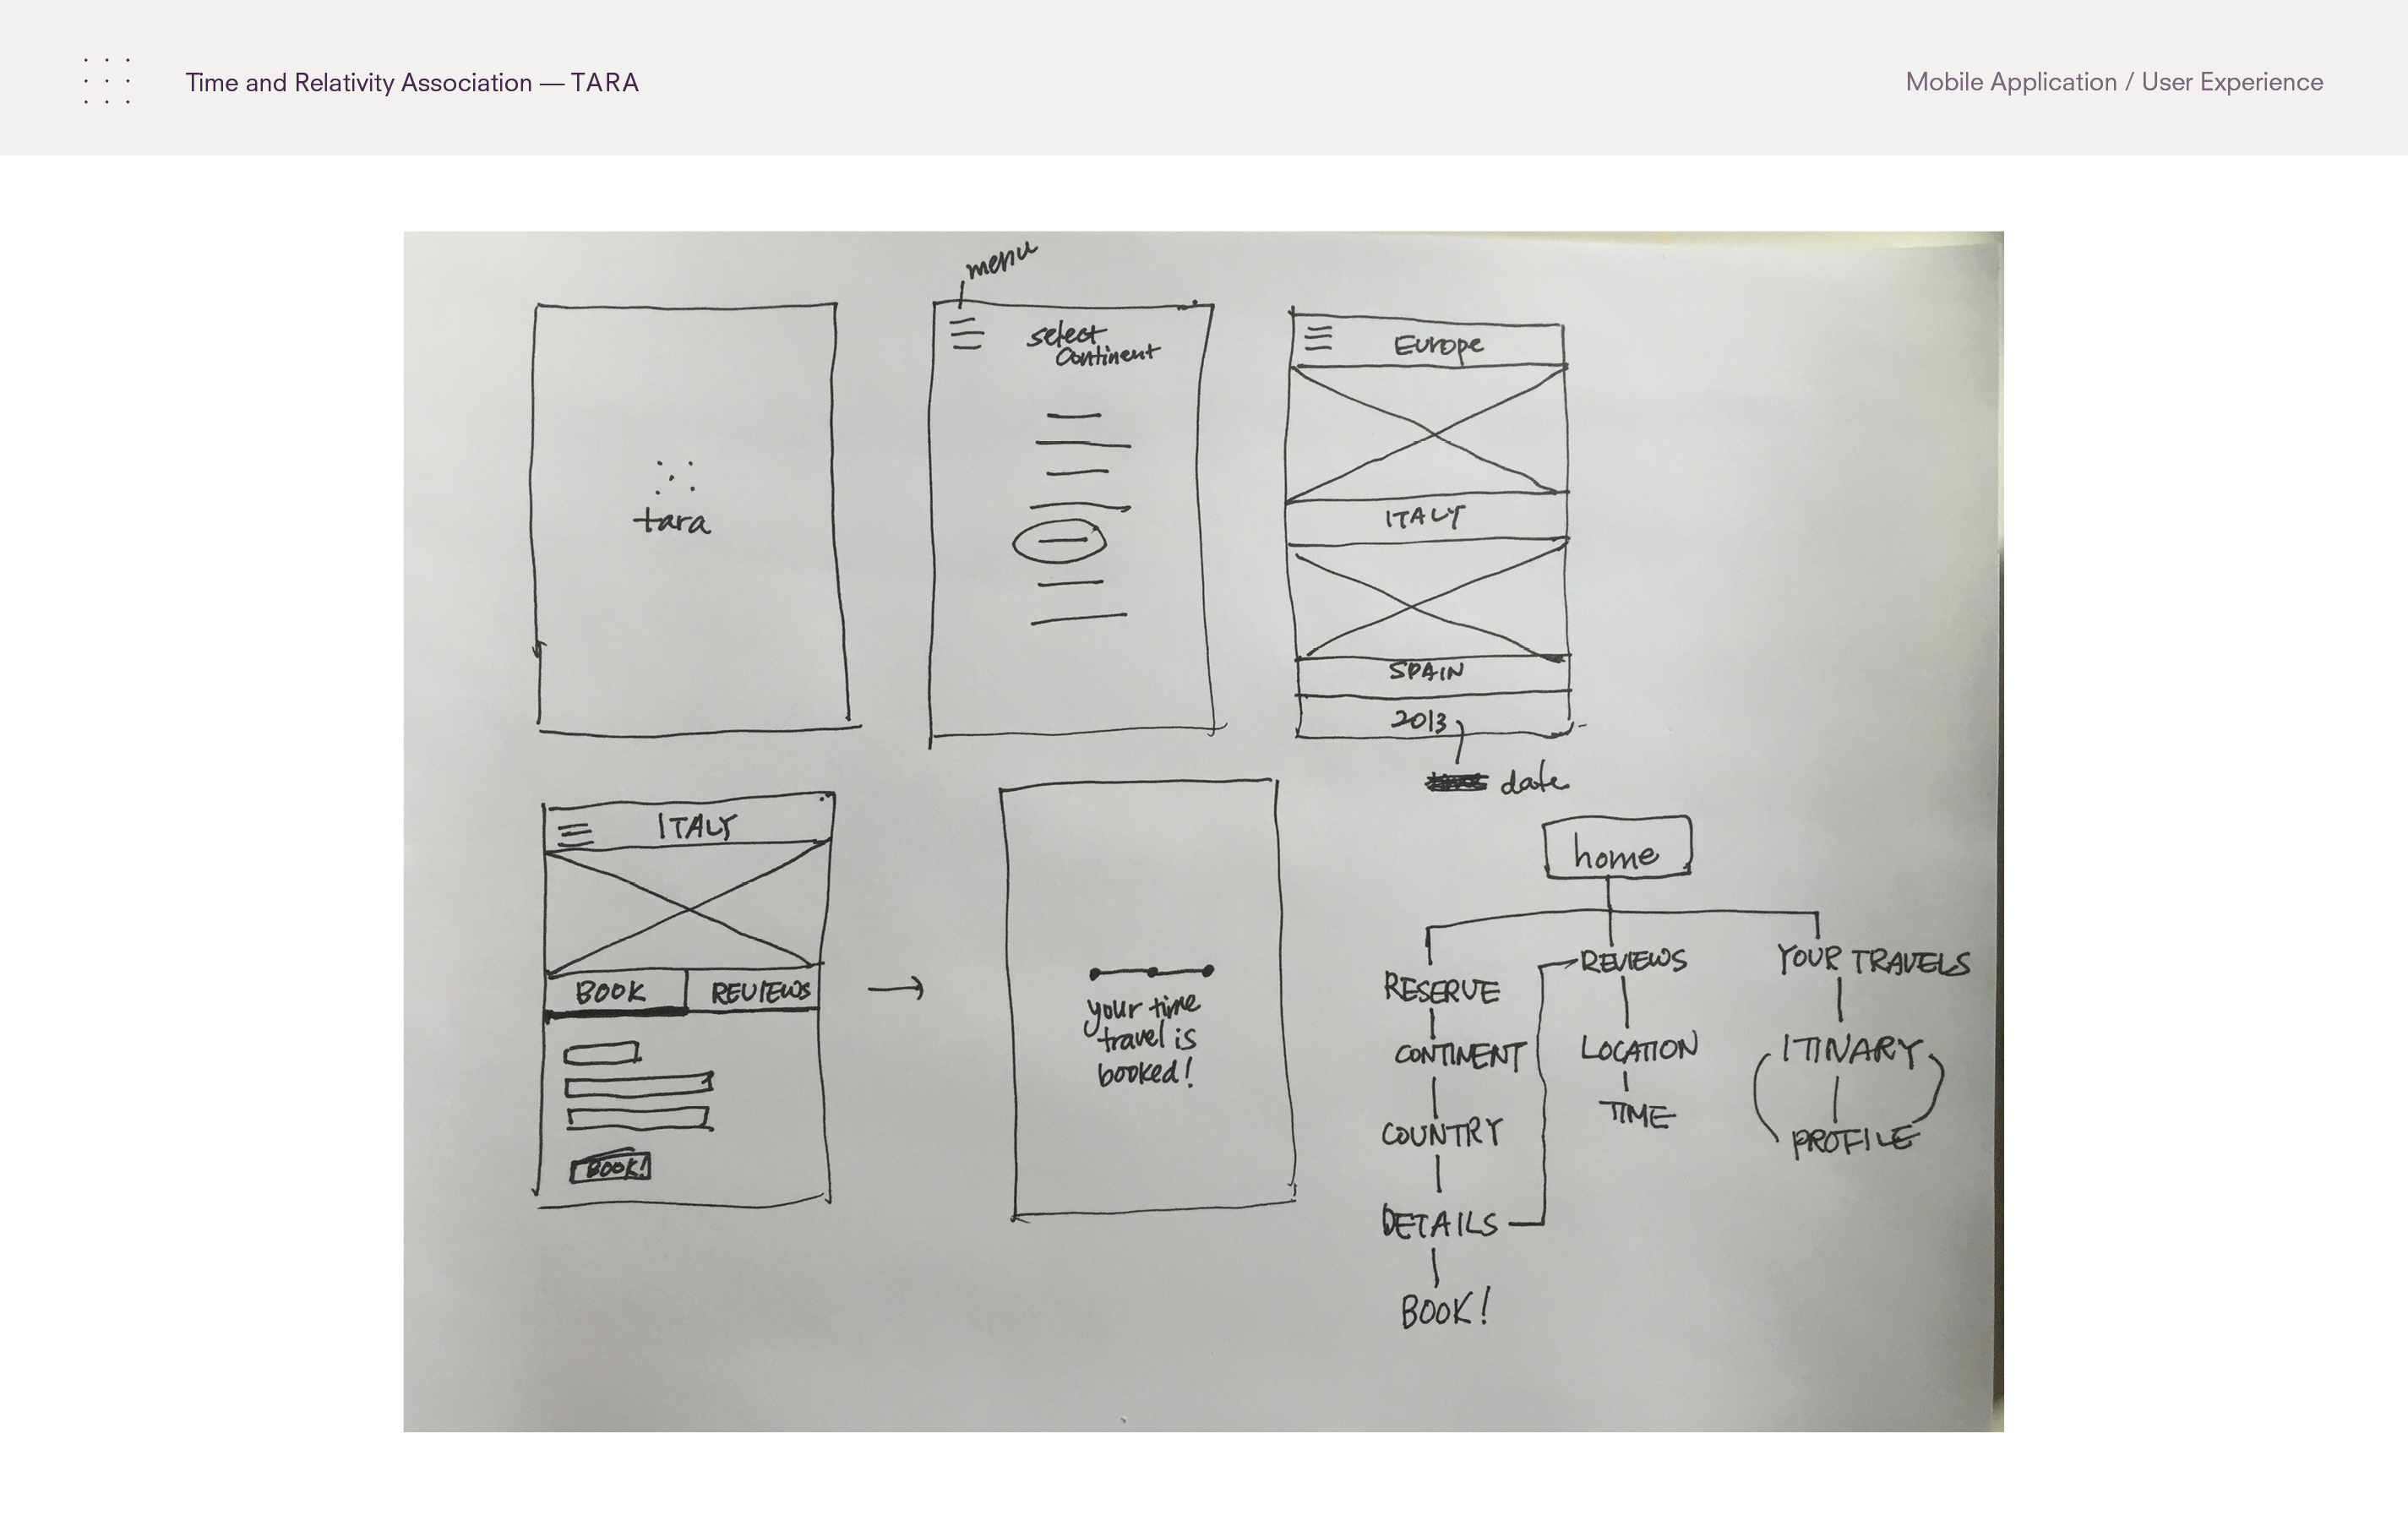 Time and Relativity Association — TARA
Mobile Application / User Experience
menu
tara
select
Continent
Europe
ITALY
SPAIN
2013
date
ITALY
BOOK
REVIEWS
BOOK!
your time
travel is
booked!
home
RESERVE
CONTINENT
COUNTRY
DETAILS
BOOK!
REVIEWS
LOCATION
TIME
YOUR TRAVELS
ITINARY
PROFILE